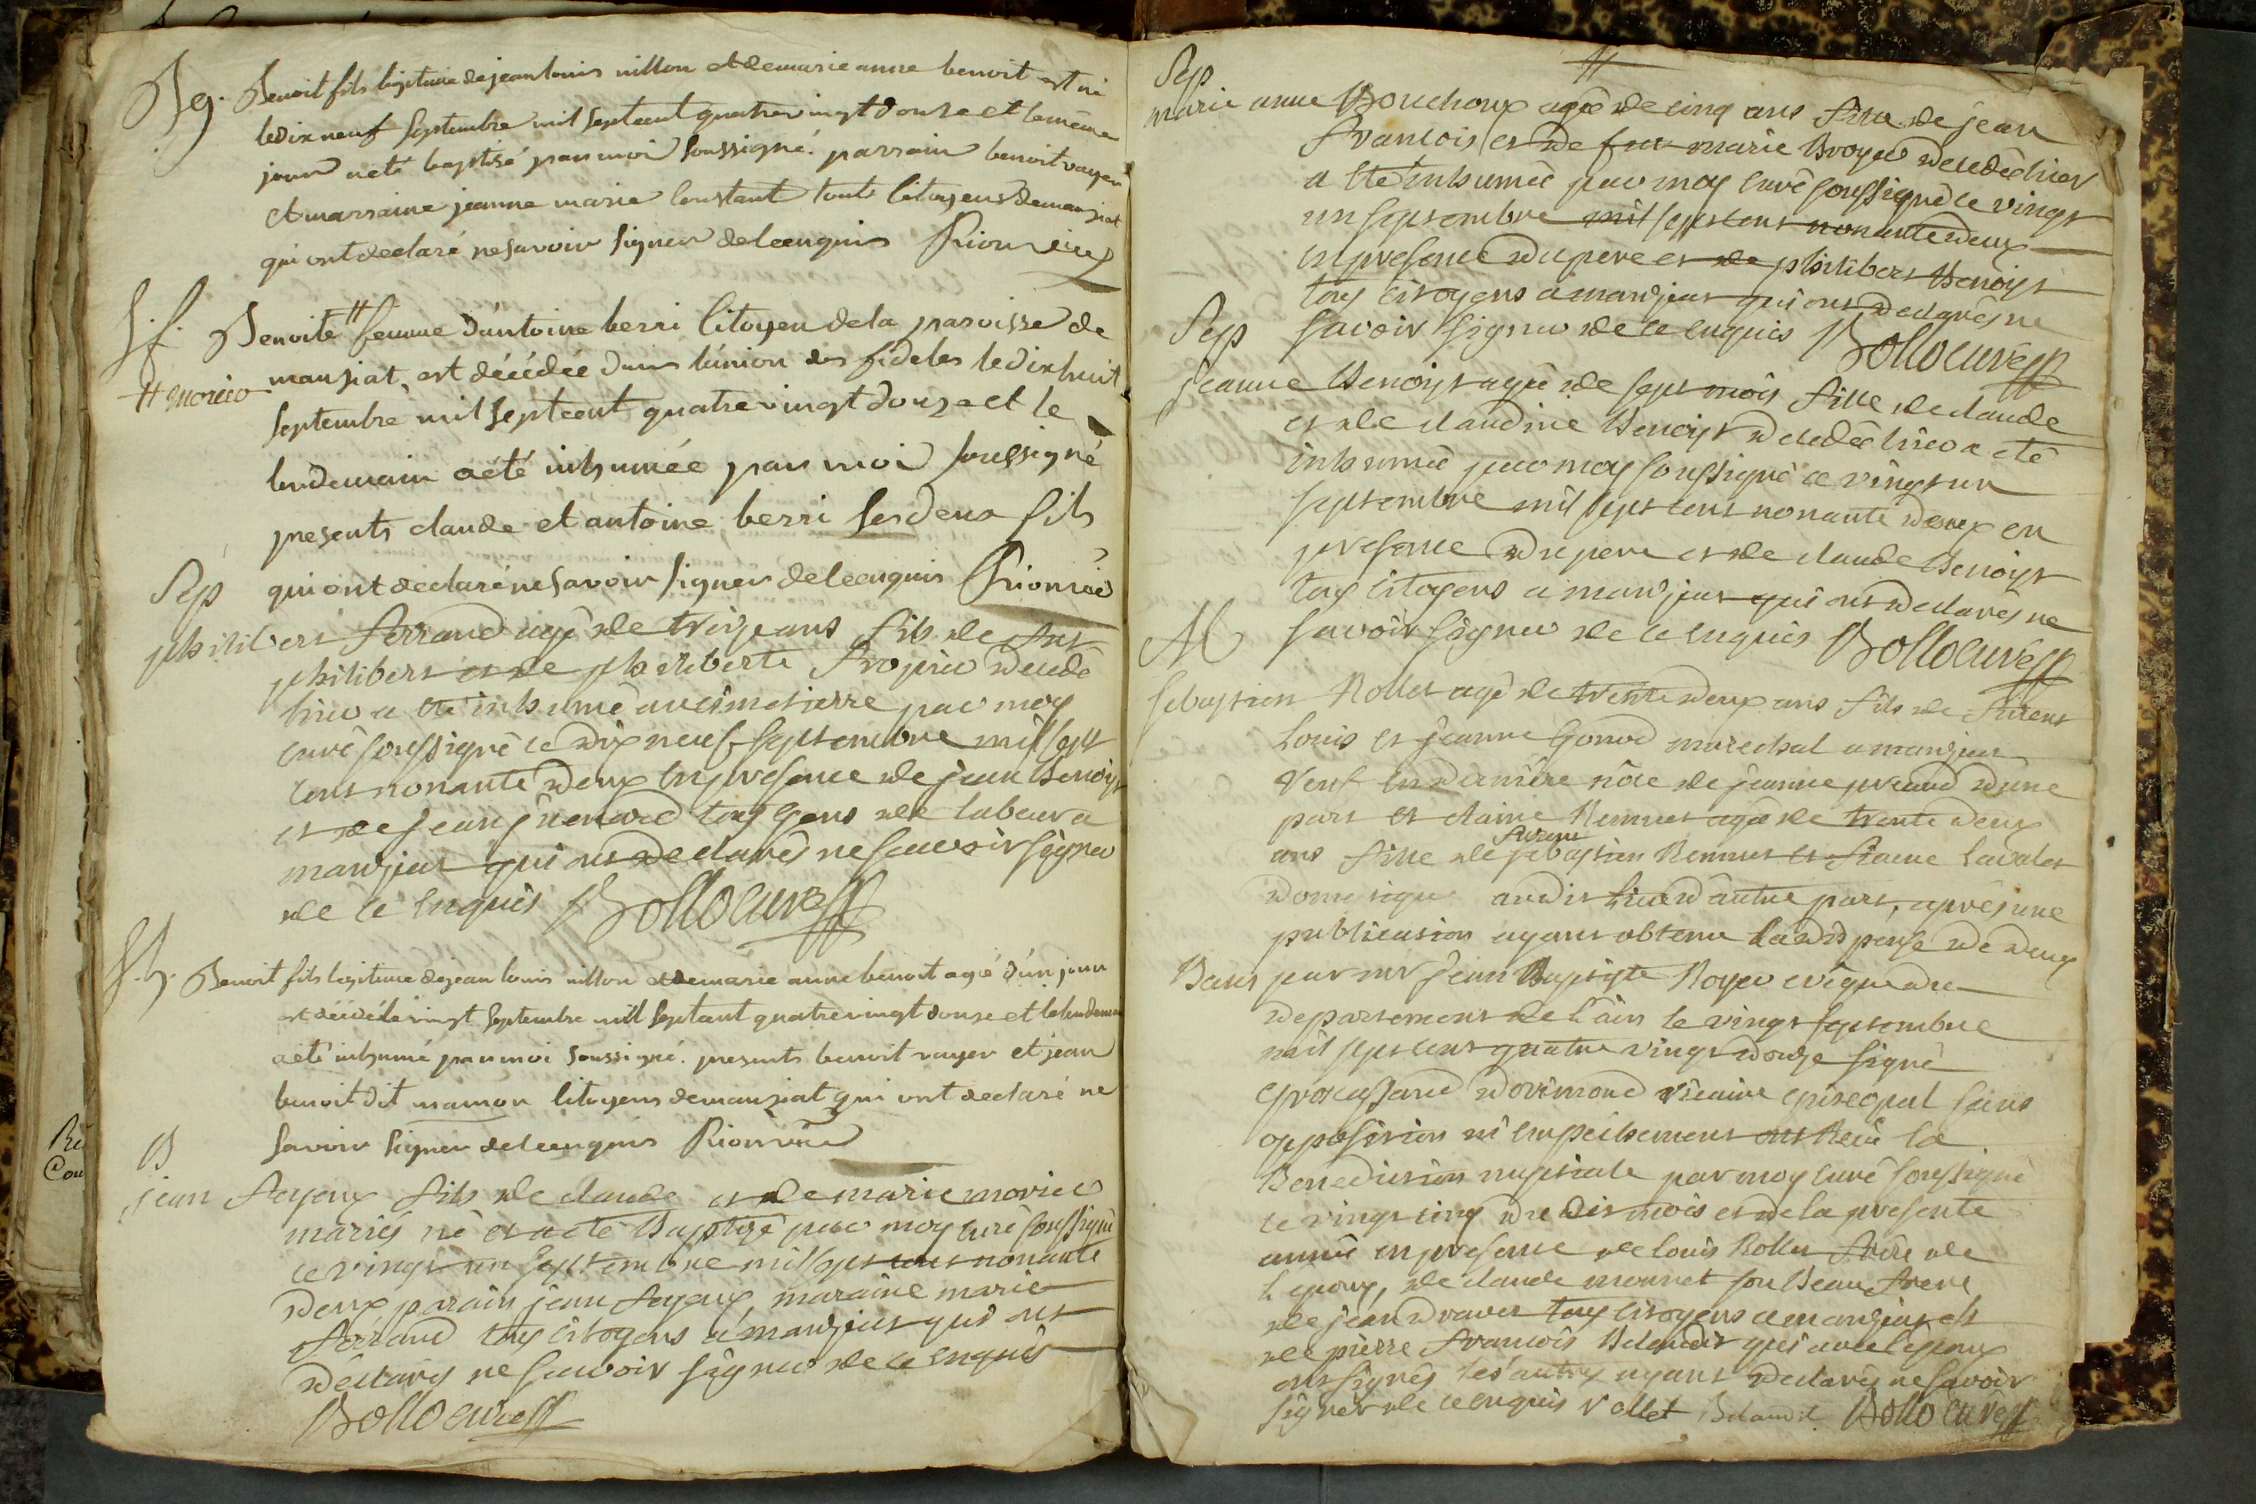 Bg. Benoit fils legitime de jean louis nillon et de marie anne benoit est né
le dix neuf septembre mil sept cent quatre vingt douze et le même
jour a été baptisé par moi soussigné. parrain benoit rayer
et marraine jeanne marie constant touts citoyens de manziat
qui ont declaré ne savoir signer de ce enquis
S.f. Benoite # femme d'antoine berri citoyen de la paroisse de
manziat, est décédée dans l'union des fideles le dix huit
# morier
septembre mil sept cent quatre vingt douze et le
lendemain a été inhumée par moi soussigné
presents claude et antoine berri ses deux fils
Sep qui ont declaré ne savoir signer de ce enquis
philibert ferrand agé de treize ans fils de fut
philibert et de philiberte decedé
hier a eté inhumé au cimetierre par moy
curé soussigné ce dix neuf septembre mil sept
cent nonante deux en presence de jean Benoist
et de jean tous gens de labeur a
manziat qui ont declarés ne scavoir signer
de ce enquis Bollo curé
S.h. Benoit fils legitime de jean louis nillon et de marie anne benoit agé d'un jour
est décédé le vingt septembre mil sept cent quatre vingt douze et le lendemain
a été inhumé par moi soussigné. presents benoit rayer et jean
benoit dit mamon citoyens de manziat qui ont declaré ne
savoir signer de ce enquis
B
jean feyeux fils de claude et de marie morier
mariés né et a eté Baptizé par moy curé soussigné
ce vingt un septembre mil sept cent nonante
deux parain jean feyeux, maraine marie
ferrand tous citoyens a manziat qui ont
declarés ne scavoir signer de ce enquis
Bollo curé
#
Sep
marie anne Bouchoux agée de cinq ans fille de jean
francois et de fut marie Broyer decedée hier
a eté inhumée par moy curé soussigné ce vingt
un septembre mil sept cent nonante deux
en presence du pere et de philibert Benoist
tous citoyens a manziat qui ont declarés ne
Sep savoir signer de ce enquis Bollo curé
jeanne Benoist agée de sept mois fille de claude
et de claudine Benoist decedée hier a eté
inhumée par moy soussigné ce vingt un
septembre mil sept cent nonante deux en
presence du pere et de claude Benoist
tous citoyens a manziat qui ont declarés ne
M savoir signer de ce enquis Bollo curé
sebastien Rollet agé de trente deux ans fils de furent
Louis et jeanne Gonod marechal a manziat
veuf en derniere nôce de jeanne preaud d'une
part et claire Remmet agée de trente deux
furent
ans fille de sebastien Remmet et
domestique audit lieu d'autre part, aprés une
publication ayant obtenu la dispense de deux
Bans par mr jean Baptiste Royer evêque du
departement de l'ain le vingt septembre
mil sept cent quatre vingt douze signé
vicaire episcopal sans
opposition ni empeichement ont recu la
Benediction nuptiale par moy curé soussigné
le vingt cinq du dit mois et de la presente
année en presence de Louis Rollet frère de
l'epoux, de claude monnet son Beau frere
de jean tous citoyens a manziat et
de pierre francois Belaudit qui avec l'epoux
ont signés les autres ayant declarés ne savoir
signer de ce enquis Rollet Belaudit Bollo curé